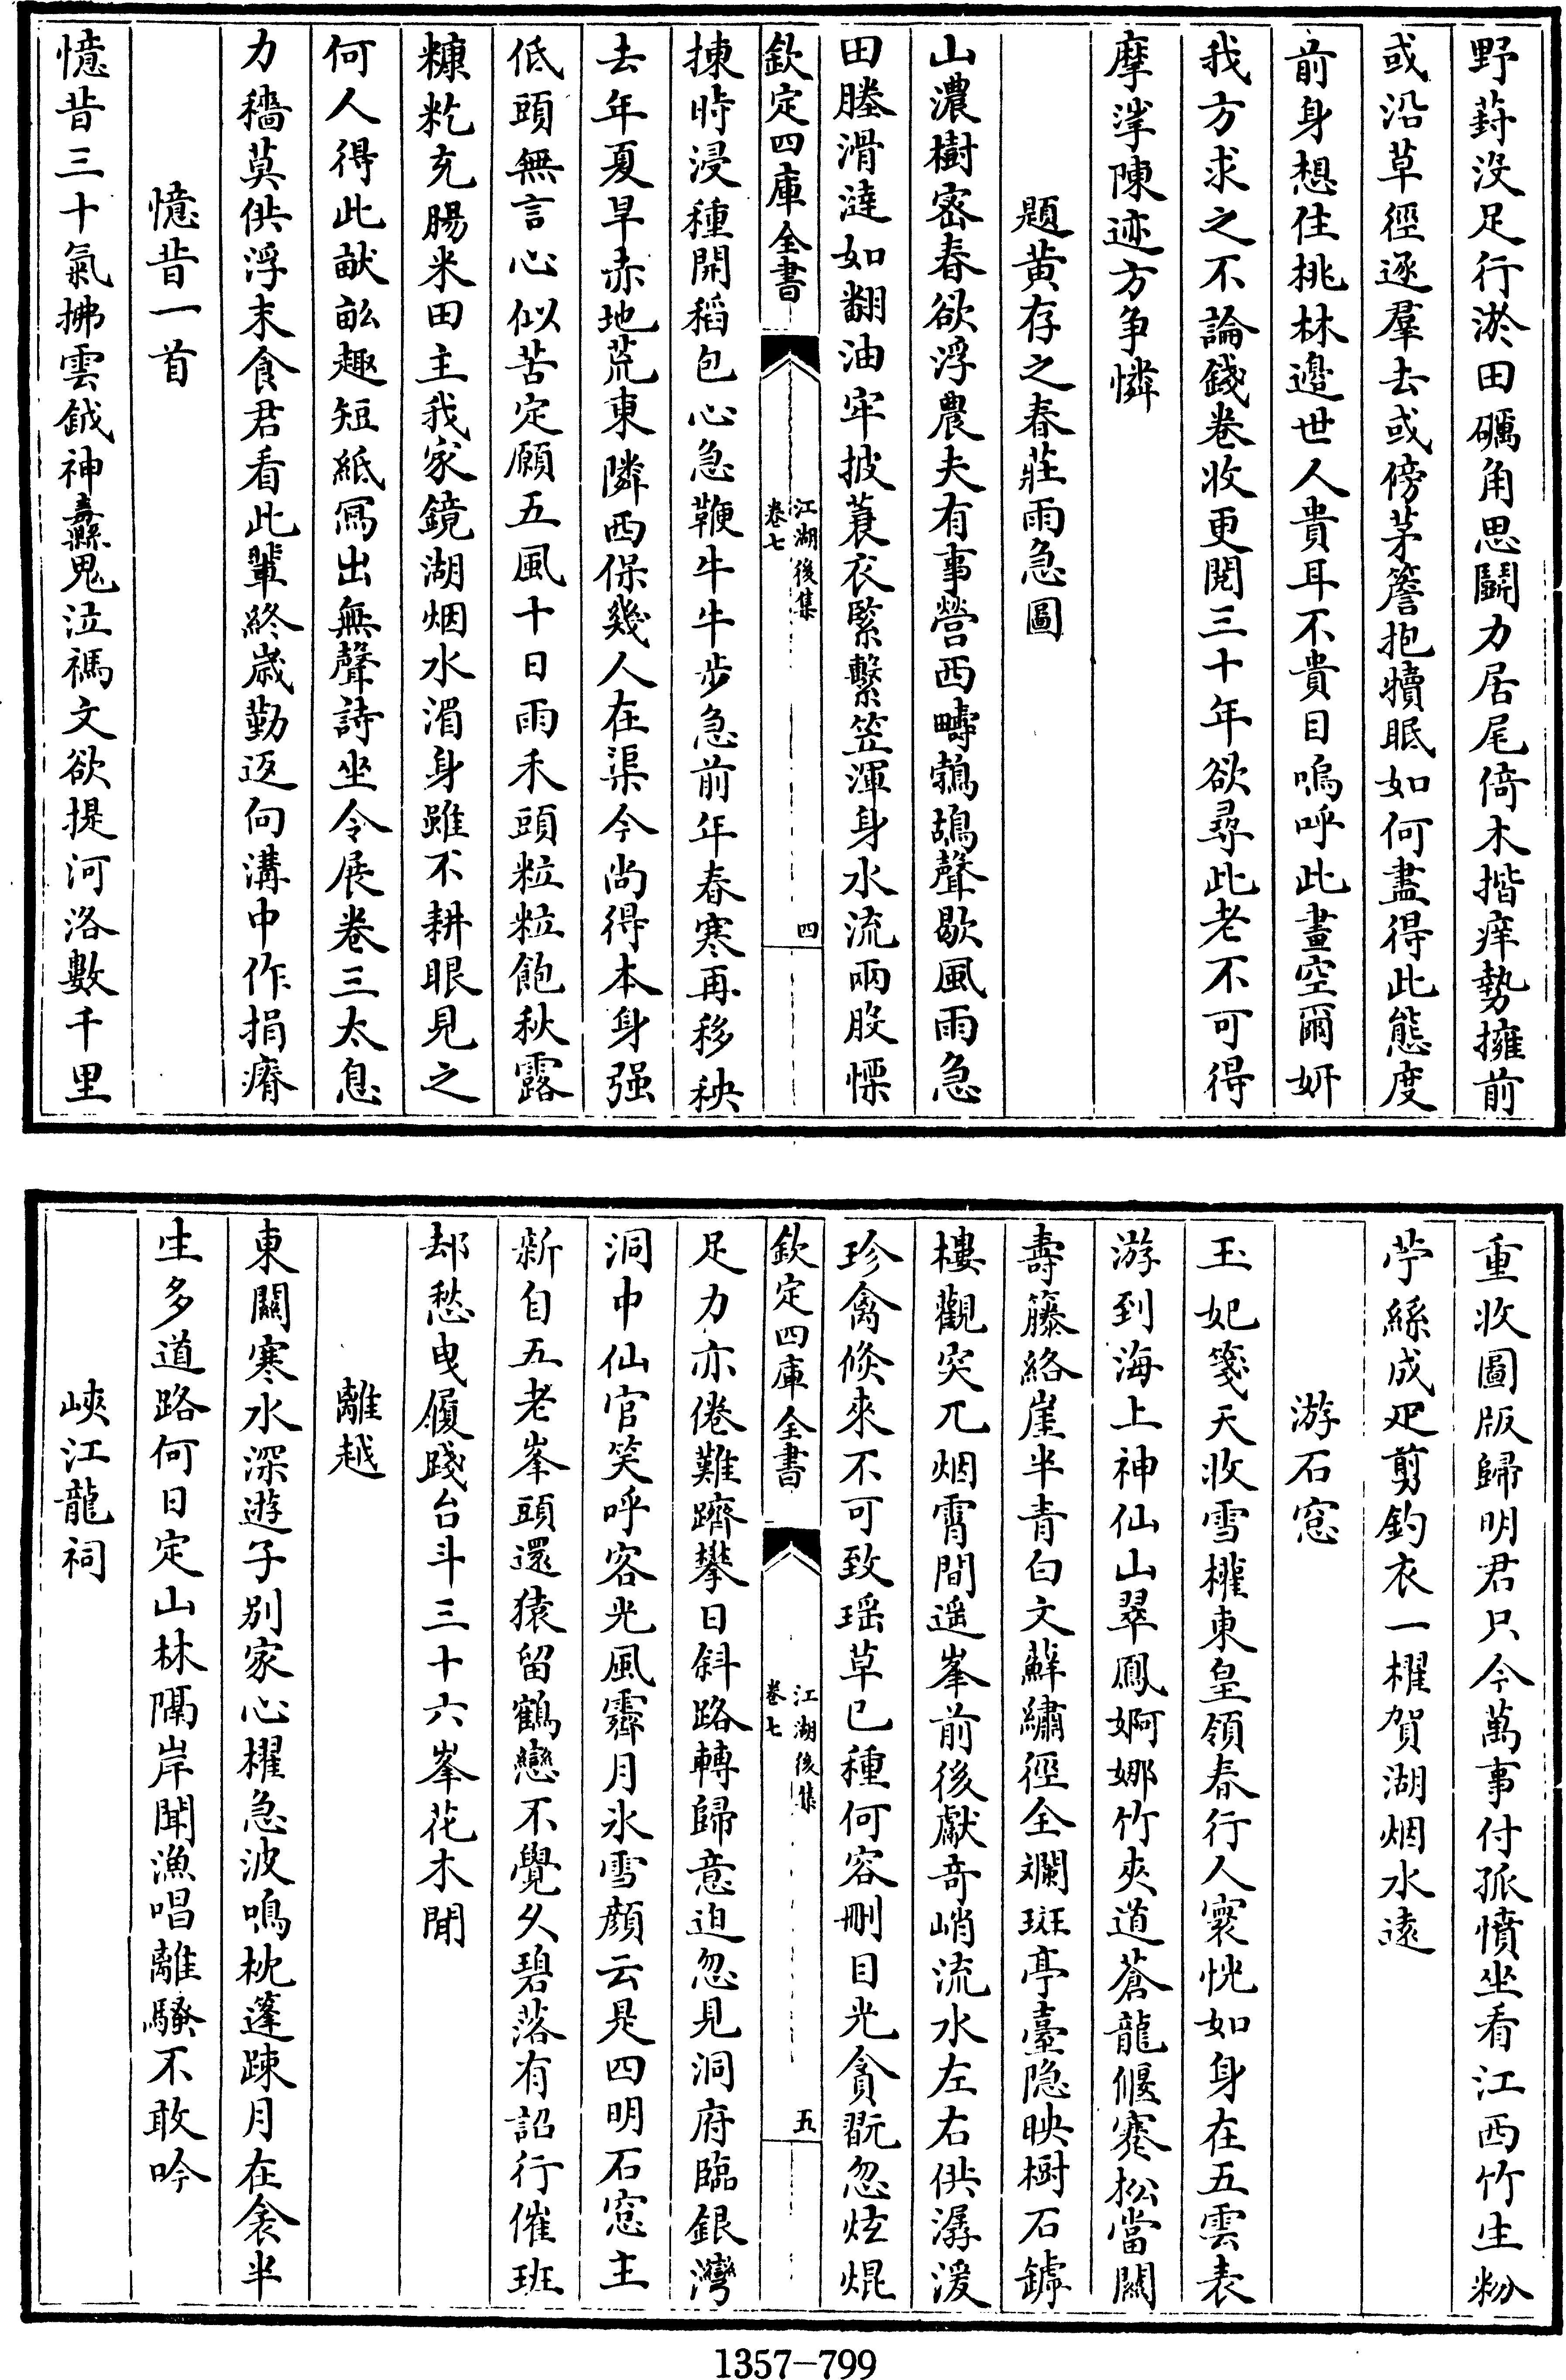 野葑没足行淤田礪角思鬬力居尾倚木揩痒勢擁前
或沿草徑逐羣去或傍茅簷抱犢眠如何盡得此態度
前身想住桃林邊世人貴耳不貴目嗚呼此畫空爾妍
我方求之不論錢卷收更閱三十年欲尋此老不可得
摩挲陳迹方争憐
題黄存之春莊雨急圖
山濃樹宻春欲浮農夫有事營西疇鵓鴣聲歇風雨急
田塍滑澾如翻油牢披蓑衣緊繫笠渾身水流兩股慄
欽定四庫全書
江湖後集
卷七
四
揀時浸種開稻包心急鞭牛牛步急前年春寒再移秧
去年夏旱赤地荒東隣西保幾人在渠今尚得本身强
低頭無言心似苦定願五風十日雨禾頭粒粒飽秋露
糠籺充腸米田主我家鏡湖烟水湄身雖不耕眼見之
何人得此猷畆趣短紙寫出無聲詩坐令展卷三太息
力穡莫供浮末食君看此輩終歲勤返向溝中作捐瘠
憶昔一首
憶昔三十氣拂雲鉞神纛鬼泣禡文欲提河洛數千里
重收圖版歸明君只今萬事付孤憤坐看江西竹生粉
苧絲成疋剪釣衣一櫂賀湖烟水遠
游石窓
玉妃箋天收雪權東皇領春行人寰恍如身在五雲表
游到海上神仙山翠鳳婀娜竹夾道蒼龍偃蹇松當關
壽籐絡崖半青白文蘚繡徑全斕斑亭臺隐映樹石罅
樓觀突兀烟霄間遥峯前後獻奇峭流水左右供潺湲
珍禽倐來不可致瑶草已種何容删目光貪翫忽炫焜
欽定四庫全書
江湖後集
卷七
五
足力亦倦難躋攀日斜路轉歸意迫忽見洞府臨銀灣
洞中仙官笑呼客光風霽月氷雪顔云是四明石窓主
新自五老峯頭還猿留鶴戀不覺久碧落有詔行催班
却愁曳履踐台斗三十六峯花木閒
離越
東關寒水深遊子别家心櫂急波鳴枕蓬踈月在衾半
生多道路何日定山林隔岸聞漁唱離騷不敢吟
峽江龍祠
1357-799